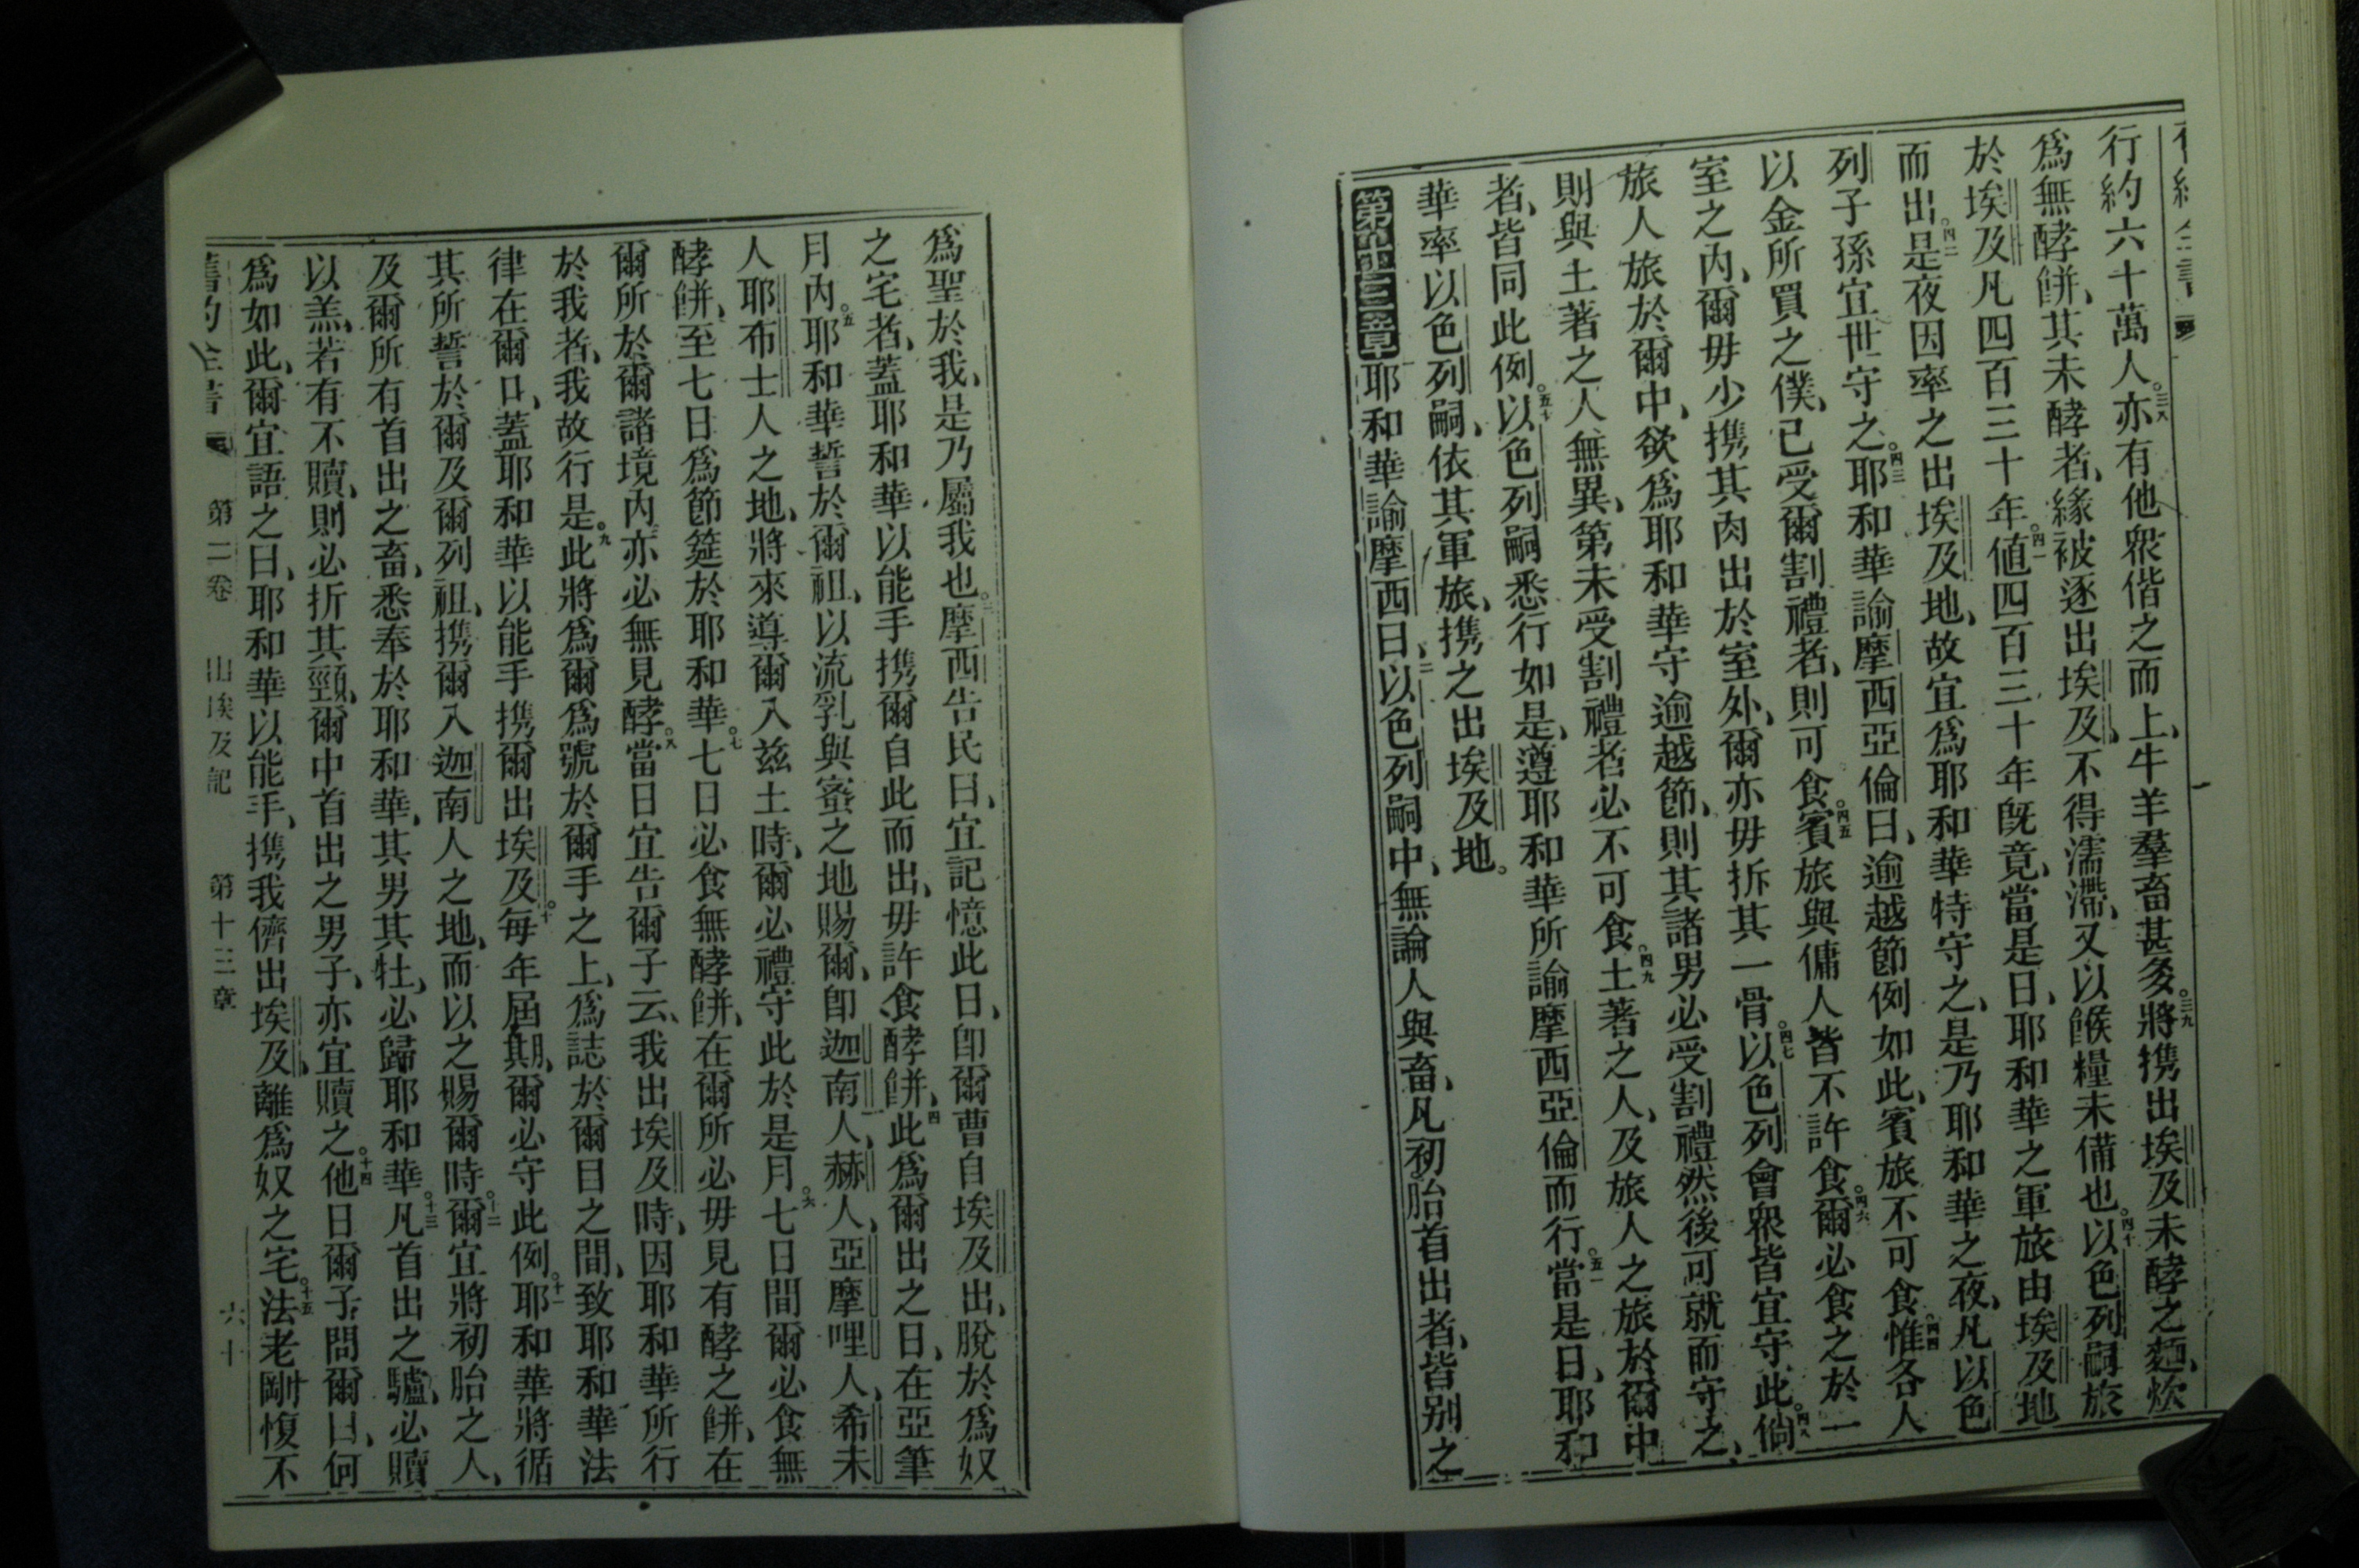 行約六十萬人。三八亦有他衆偕之而上、牛羊羣畜甚多。三九將携出埃及未酵之麵、炊
爲無酵餅、其未酵者、緣被逐出埃及、不得濡滯、又以餱糧未備也。四十以色列嗣旅
於埃及凡四百三十年。四一値四百三十年旣竟、當是日、耶和華之軍旅由埃及地
而出。四二是夜因率之出埃及地、故宜爲耶和華特守之、是乃耶和華之夜、凡以色
列子孫宜世守之。四三耶和華諭摩西亞倫曰、逾越節例如此、賓旅不可食。四四惟各人
以金所買之僕、已受爾割禮者、則可食。四五賓旅與傭人皆不許食。四六爾必食之於一
室之內、爾毋少携其肉出於室外、爾亦毋拆其一骨。四七以色列會衆皆宜守此。四八倘
旅人旅於爾中、欲爲耶和華守逾越節、則其諸男必受割禮然後可就而守之、
則與土著之人無異、第未受割禮者必不可食。四九土著之人、及旅人之旅於爾中
者、皆同此例。五十以色列嗣悉行如是、遵耶和華所諭摩西亞倫而行。五一當是日、耶和
華率以色列嗣、依其軍旅、携之出埃及地。
第十三章耶和華諭摩西曰、二以色列嗣中、無論人與畜、凡初胎首出者、皆別之
爲聖於我、是乃屬我也。三摩西告民曰、宜記憶此日、卽爾曹自埃及出、脫於爲奴
之宅者、蓋耶和華以能手携爾自此而出、毋許食酵餅、四此爲爾出之日、在亞筆
月內。五耶和華誓於爾祖、以流乳與蜜之地賜爾、卽迦南人、赫人、亞摩哩人、希未
人耶布士人之地、將來導爾入兹土時、爾必禮守此於是月。六七日間爾必食無
酵餅、至七日爲節筵於耶和華。七七日必食無酵餅、在爾所必毋見有酵之餅、在
爾所於爾諸境內亦必無見酵。八當日宜告爾子云、我出埃及時、因耶和華所行
於我者、我故行是。九此將爲爾爲號於爾手之上、爲誌於爾目之間、致耶和華法
律在爾口、蓋耶和華以能手携爾出埃及。十每年屆期、爾必守此例。十一耶和華將循
其所誓於爾及爾列祖、携爾入迦南人之地、而以之賜爾時。十二爾宜將初胎之人、
及爾所有首出之畜、悉奉於耶和華、其男其牡、必歸耶和華。十三凡首出之驢、必贖
以羔、若有不贖、則必折其頸、爾中首出之男子、亦宜贖之。十四他日爾子問爾曰、何
爲如此、爾宜語之曰、耶和華以能手、携我儕出埃及、離爲奴之宅。十五法老剛愎不
舊約全書 第二卷 出埃及記 第十三章 六十